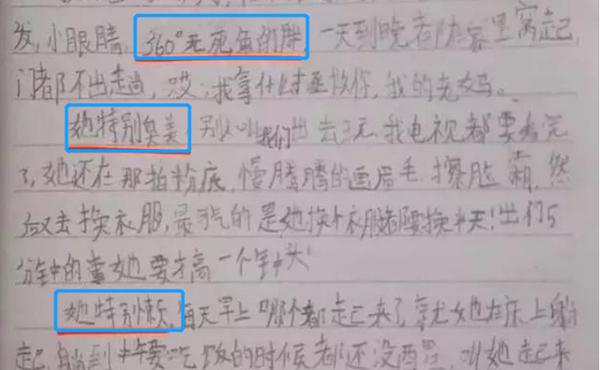 发,小眼睛,360°无死角的胖,一天到晚都在家里窝起,
门都不出趟,哎,我拿什么拯救你,我的老妈。
她特别臭美,别人叫我们出去玩,我电视都要看完
了,她还在那拍粉底,慢腾腾的画眉毛,擦脸霜,然
后又去换衣服,最气的是她换个衣服都要换半天!出门5
分钟的事她要才高一个钟头!
她特别懒,每天早上哪个都起来了,就她在床上躺
起,躺到中午要吃饭的时候都还没洒里,叫她起来